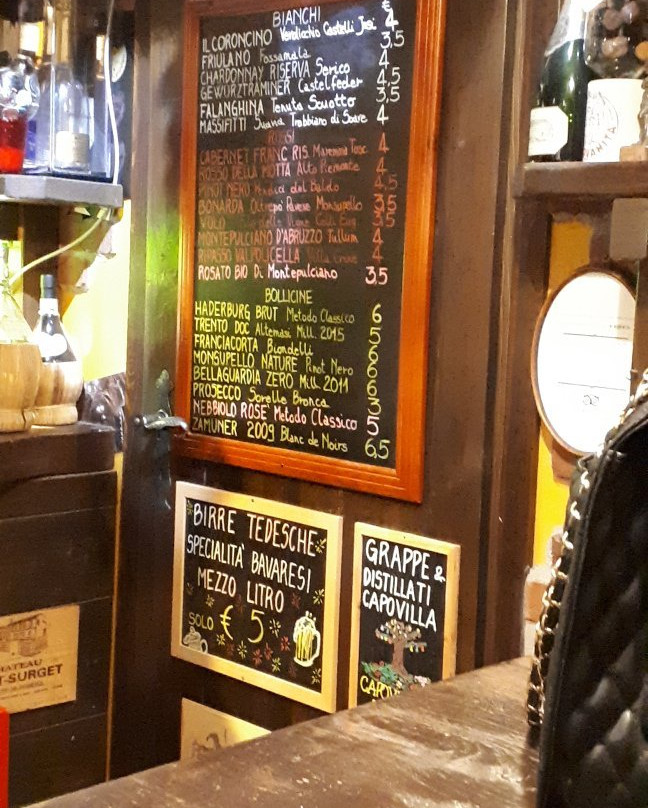 BIANCHI €
IL CORONCINO Verdicchio Castelli Jesi 4
FRIULANO Fossamala 3,5
CHARDONNAY RISERVA Serico 4
GEWURZTRAMINER Castelfeder 4,5
FALANGHINA Tenuta Scuotto 3,5
MASSIFITTI Suavia Trebbiano di Soave 4
ROSSI
CABERNET FRANC RIS. Maremma Tosc. 4
ROSSO DELLA MOTTA Alto Piemonte 4
PINOT NERO del Baldo 4,5
BONARDA Oltrepò Pavese Monsupello 3,5
3,5
MONTEPULCIANO D'ABRUZZO Tullum 4
RIPASSO VALPOLICELLA 4
ROSATO BIO Di Montepulciano 3,5
BOLLICINE
HADERBURG BRUT Metodo Classico 6
TRENTO DOC Altemasi Mill. 2015 5
FRANCIACORTA Biondelli 6
MONSUPELLO NATURE Pinot Nero 6
BELLAGUARDIA ZERO Mill. 2011 6
PROSECCO Sorelle Bronca 3
NEBBIOLO ROSE' Metodo Classico 5
ZAMUNER 2009 Blanc de Noirs 6,5
BIRRE TEDESCHE
SPECIALITA' BAVARESI
MEZZO LITRO
SOLO € 5
GRAPPE &
DISTILLATI
CAPOVILLA
-SURGET